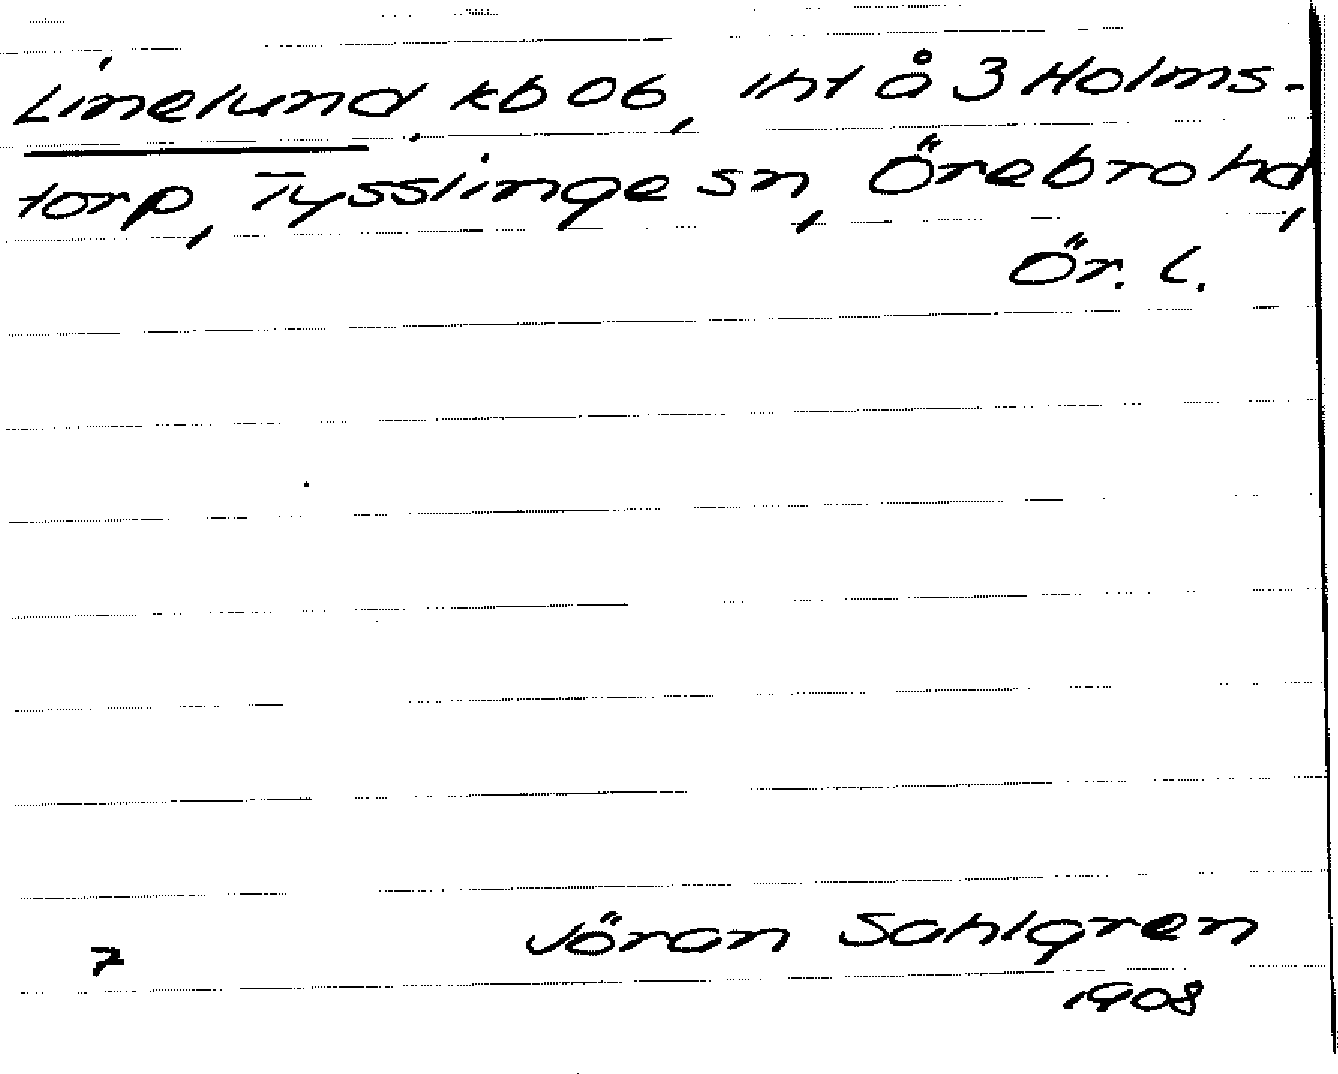 Linelund kb 06, lht å 3 Holms-
torp, Tysslinge sn, Örebro hd,
Ör. l.
7 Jöran Sahlgren
1908